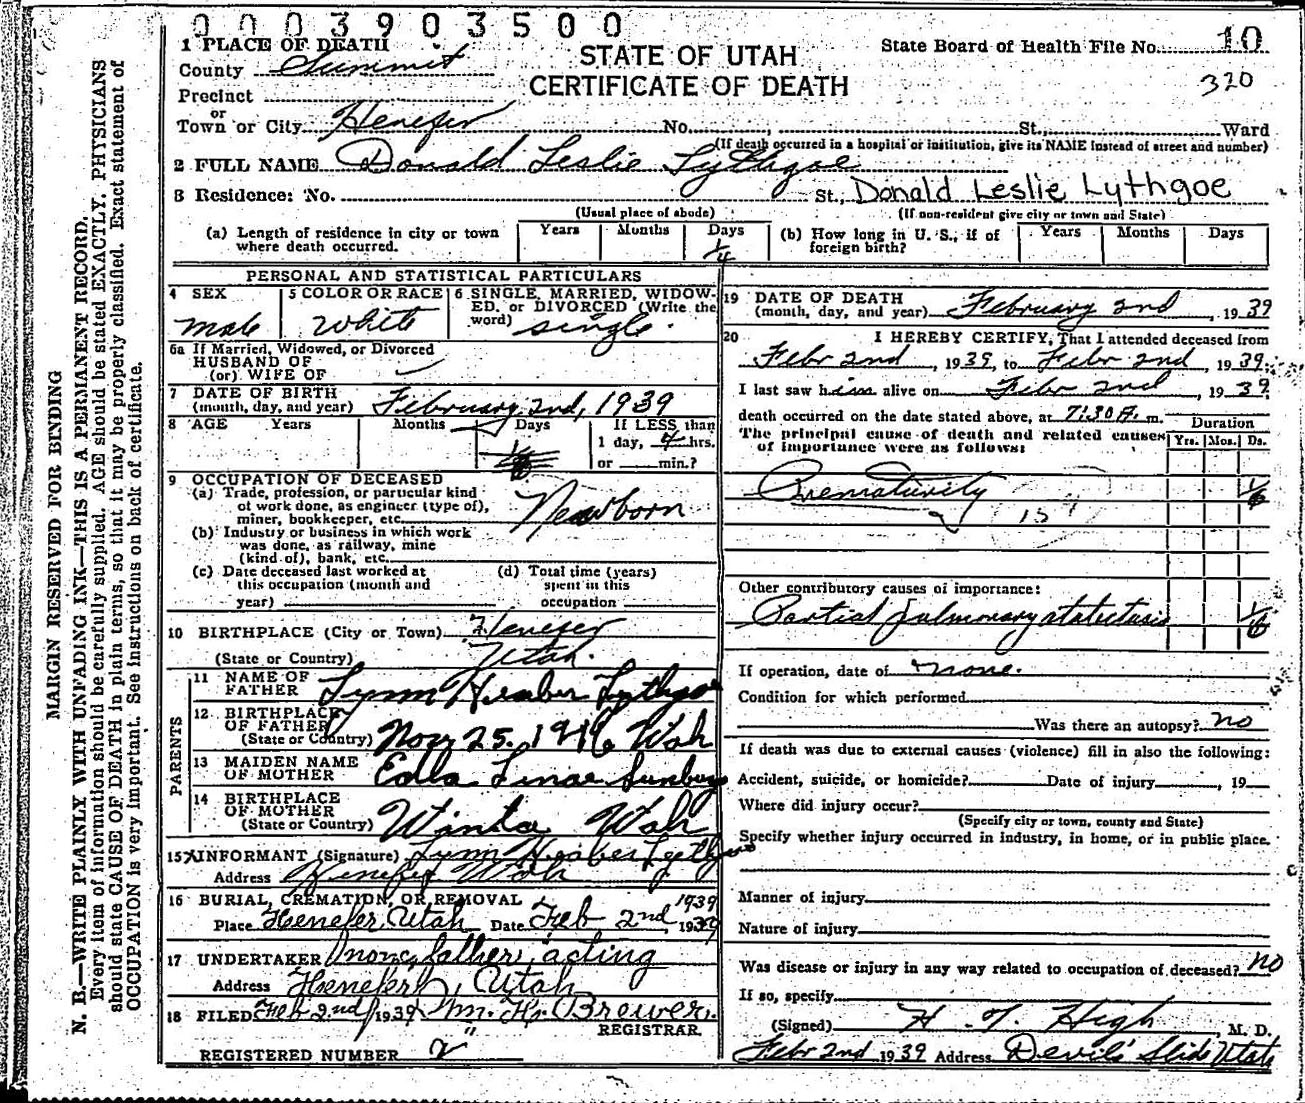 0003903500
1 PLACE OF DEATH
County Summit
STATE OF UTAH
CERTIFICATE OF DEATH
State Board of Health File No. 10
320
Precinct
or
Town or City Henefer No. , St., Ward
(If death occurred in a hospital or institution, give its NAME instead of street and number)
2 FULL NAME Donald Leslie Lythgoe
3 Residence: No. St., Donald Leslie Lythgoe
(Usual place of abode) (If non-resident give city or town and State)
(a) Length of residence in city or town where death occurred. Years Months Days 1/4
(b) How long in U. S., if of foreign birth? Years Months Days
PERSONAL AND STATISTICAL PARTICULARS
4 SEX male
5 COLOR OR RACE white
6 SINGLE, MARRIED, WIDOWED, or DIVORCED (Write the word) single.
6a If Married, Widowed, or Divorced
HUSBAND OF
(or) WIFE OF
7 DATE OF BIRTH
(month, day, and year) February 2nd, 1939
8 AGE Years Months Days If LESS than
1 day, 4 hrs.
or min.?
9 OCCUPATION OF DECEASED
(a) Trade, profession, or particular kind
of work done, as engineer (type of),
miner, bookkeeper, etc. Newborn
(b) Industry or business in which work
was done, as railway, mine
(kind of), bank, etc.
(c) Date deceased last worked at
this occupation (month and
year)
(d) Total time (years)
spent in this
occupation
10 BIRTHPLACE (City or Town) Henefer
(State or Country) Utah.
PARENTS
11 NAME OF
FATHER Lynn Heaber Lythgoe
12 BIRTHPLACE
OF FATHER
(State or Country) Nov 25. 1916
13 MAIDEN NAME
OF MOTHER
14 BIRTHPLACE
OF MOTHER
(State or Country)
15 X INFORMANT (Signature) Lynn Heaber Lythgoe
Address Henefer
16 BURIAL, CREMATION, OR REMOVAL 1939
Place Henefer, Utah Date Feb 2nd, 1939
17 UNDERTAKER None, father, acting
Address Henefer, Utah
18 FILED Feb 2nd 1939 Wm. Hy. Brewer.
REGISTRAR.
REGISTERED NUMBER 2
19 DATE OF DEATH
(month, day, and year) February 2nd, 1939
20 I HEREBY CERTIFY, That I attended deceased from
Febr 2nd, 1939, to Febr 2nd, 1939.
I last saw him alive on Febr 2nd, 1939.
death occurred on the date stated above, at 7:30 A. m.
The principal cause of death and related causes
of importance were as follows:
Duration
Yrs. Mos. Ds.
Prematurity 1/6
15
Other contributory causes of importance:
Partial pulmonary atalectasis 1/6
If operation, date of none.
Condition for which performed
Was there an autopsy? no
If death was due to external causes (violence) fill in also the following:
Accident, suicide, or homicide? Date of injury , 19
Where did injury occur?
(Specify city or town, county and State)
Specify whether injury occurred in industry, in home, or in public place.
Manner of injury
Nature of injury
Was disease or injury in any way related to occupation of deceased? no
If so, specify
(Signed) H. T. High, M. D.
Febr 2nd 1939 Address Devil's Slide Utah
MARGIN RESERVED FOR BINDING
N. B.—WRITE PLAINLY WITH UNFADING INK—THIS IS A PERMANENT RECORD.
Every item of information should be carefully supplied. AGE should be stated EXACTLY. PHYSICIANS
should state CAUSE OF DEATH in plain terms, so that it may be properly classified. Exact statement of
OCCUPATION is very important. See instructions on back of certificate.